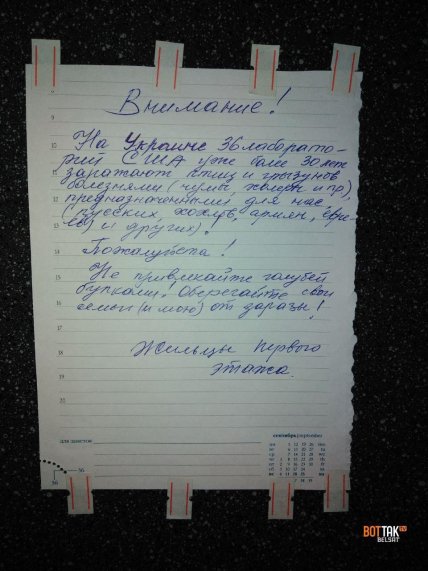 Внимание!
На Украине 36 лаборато-
рий США уже более 30 лет
заражают птиц и грызунов
болезнями (чумы, холеры и пр),
предназначенными для нас
(русских, хохлов, армян, евре-
ев) и других).
Пожалуйста!
Не привлекайте голубей
булками! Оберегайте свои
семьи (и мою) от заразы!
Жильцы первого
этажа.
9
10
11
12
13
14
15
16
18
19
20
для заметок
сентябрь/september
36
36
ВОТТАК
BELSAT